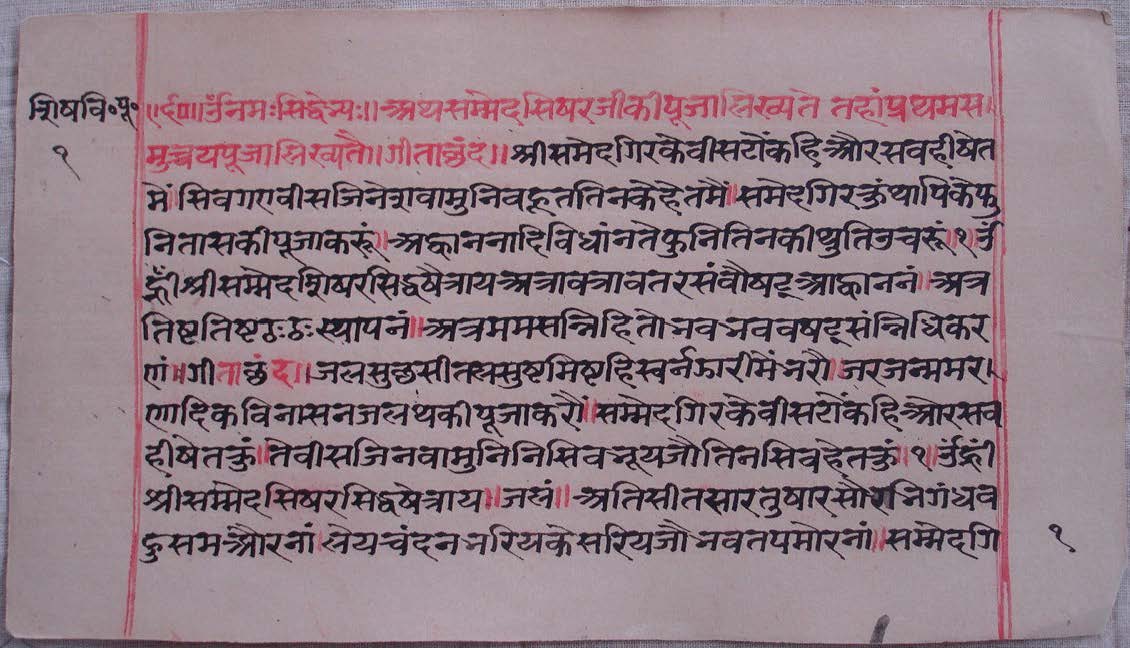 शिषवि॰पू॰
१
॥ र्द॰॥ उँनमःसिद्धेभ्यः॥ अथसम्मेदसिषरजीकीपूजालिख्यते तहांप्रथमस।
मुच्चयपूजालिख्यतै॥ गीताछंद॥ श्रीसमेदगिरकेवीसटोंकहि औरसवहीषेत
मैं॥ सिवगएवीसजिनेशवामुनिवहूततिनकेहेतमैं॥ समेदगिरकुंथापिकेफु
नितासकीपूजाकरूं॥ अह्वाननादिविधांनतेफुनितिनकीथुतिउचरूं॥ १॥ उँ
ह्रीँश्रीसम्मेदशिषरसिद्धषैत्रायअत्रावत्रावतरसंवौषट्आह्वाननं॥ अत्र
तिष्टतिष्टठःठःस्थापनं॥ अत्रममसन्निहितोभवभववषट्संन्निधिकर
णं॥ गीताछंद॥ जलसुछसीतलसुष्टमिष्टहिस्वर्नझारीमैंभरौ॥ जरजन्ममर।
णादिकविनासनजलथकीपूजाकरौं॥ सम्मेदगिरकेवीसटोंकहिओरसव
हीषेतकुं॥ तेवीसजिनवामुनिनिसिवभूयजौतिनसिवहेतकुं॥ १॥ उँह्रीं
श्रीसम्मेदसिषरसिद्धषेत्राय॥ जलं॥ अतिसीतसारतुषारसौरभिगंधव
हुसमऔरनां॥ लेयचंदनभरियकेसरियजौभवतपमोरनां॥ सम्मेदगि
१